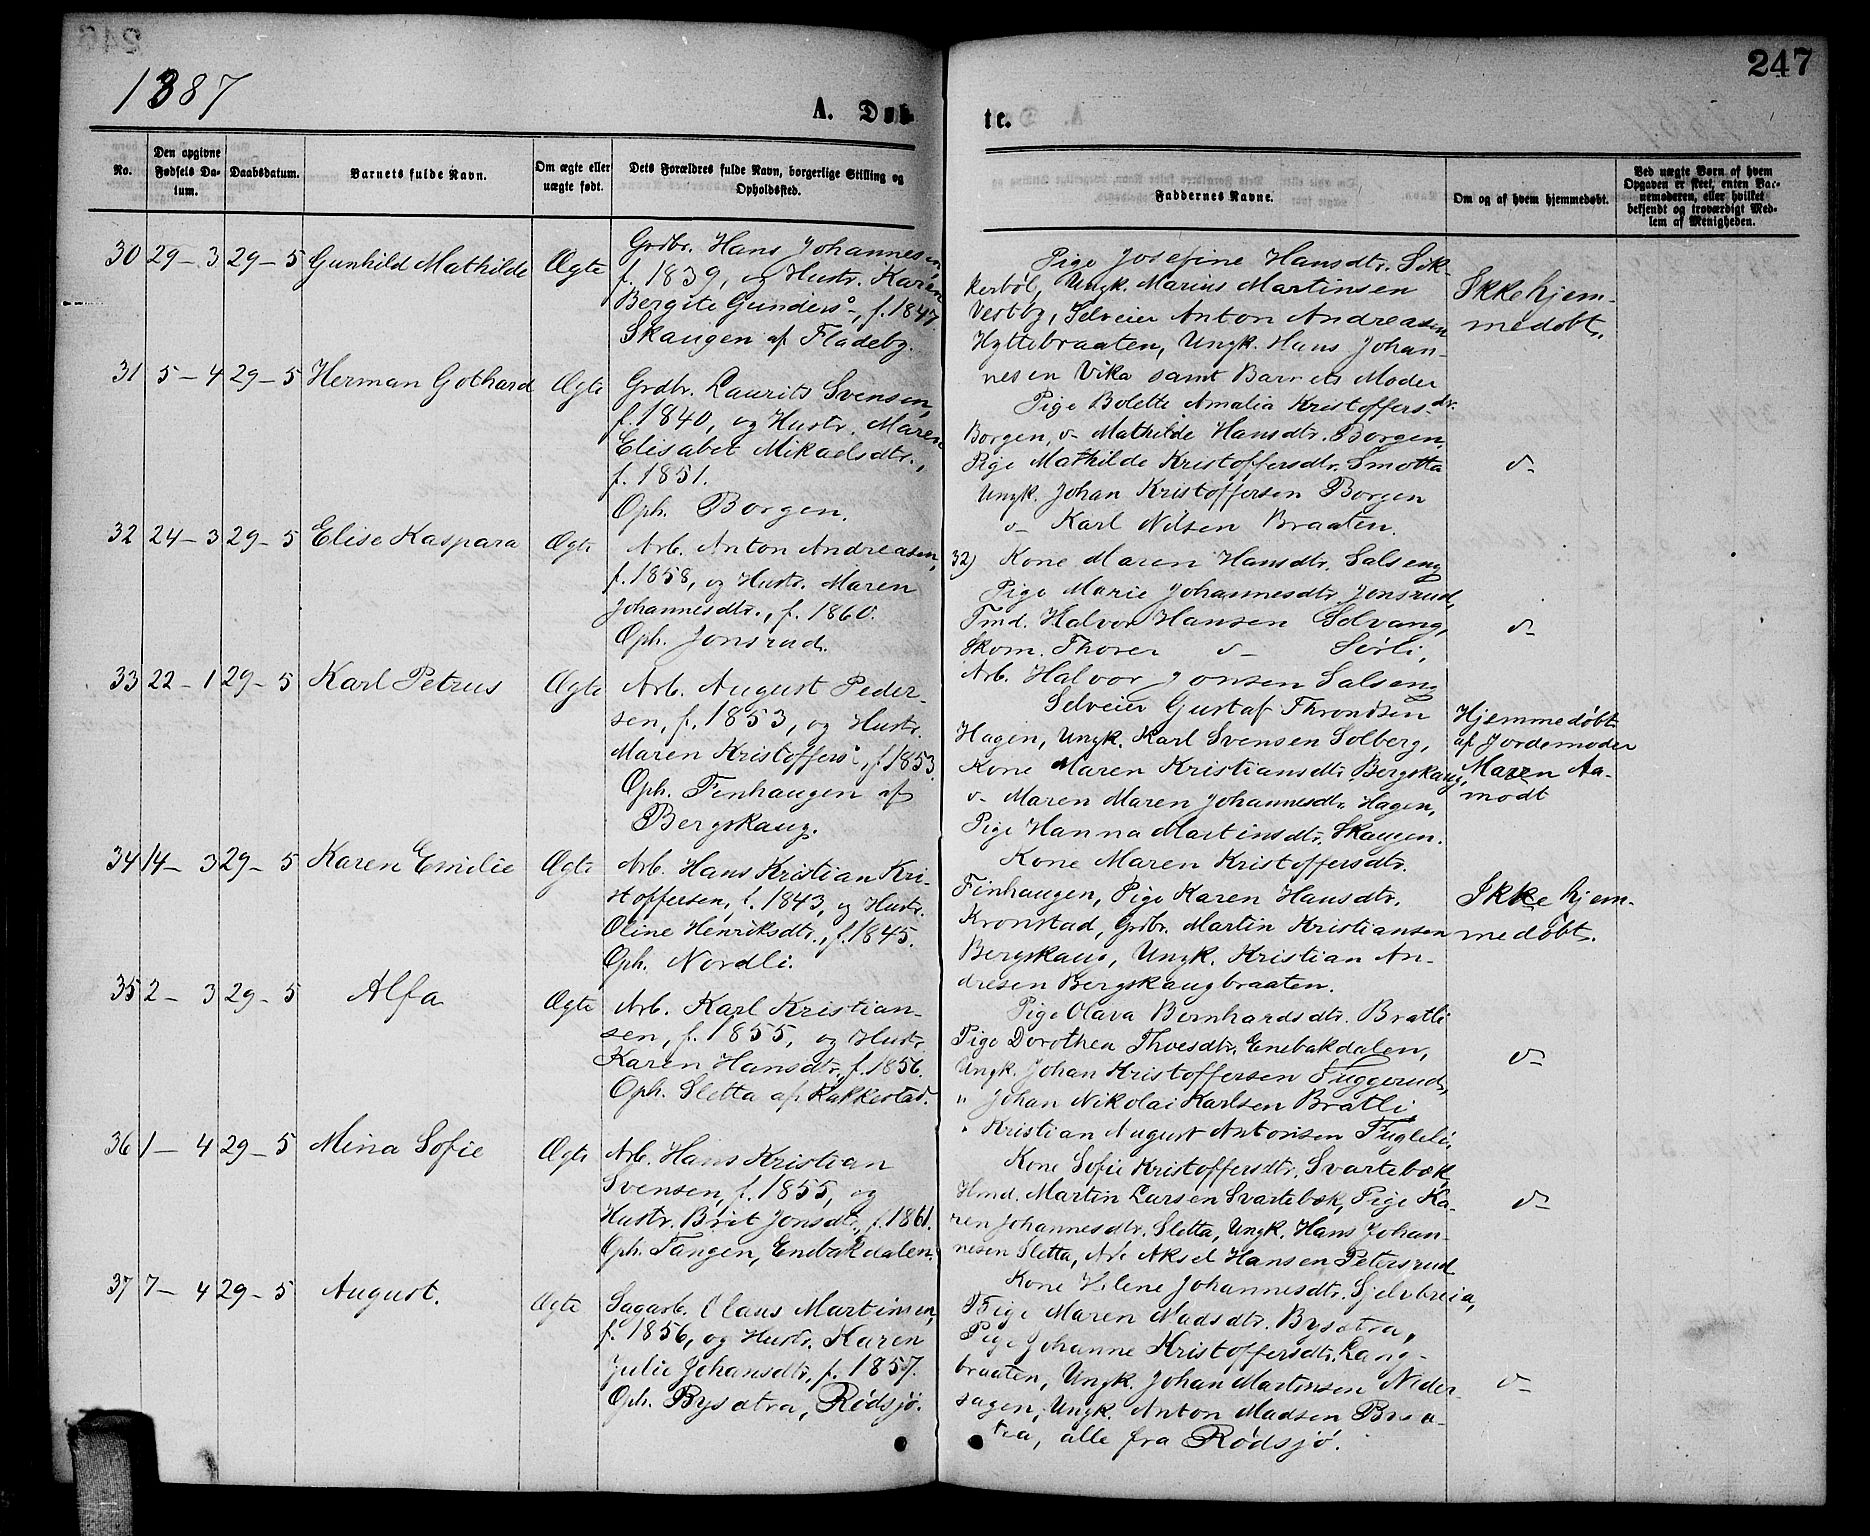 247
1887
A. Døb-
te.
No.
Den opgivne Fødsels Datum.
Daabsdatum.
Barnets fulde Navn.
Om ægte eller uægte født.
Dets Forældres fulde Navn, borgerlige Stilling og Opholdssted.
Faddernes Navne.
Om og af hvem hjemmedøbt.
Ved uægte Børn af hvem Opgaven er skeet, enten Barnemoderen, eller hvilket bekjendt og troværdigt Medlem af Menigheden.
30 29-3 29-5 Gunhild Mathilde Ægte
Grdbr. Hans Johannesen
f. 1839, og Hustr. Karen
Bergite Gunders°, f. 1847
Skaugen af Fladeby.
Pige Josefine Hansdtr. Sik-
kerbøl, Ungk. Marius Martinsen
Vestby, Selveier Anton Andreasen
Hyttebraaten, Ungk. Hans Johan-
nesen Vika samt Barnets Moder
Ikke hjem-
medøbt.
31 5-4 29-5 Herman Gothard Ægte
Grdbr. Laurits Svensen,
f. 1840, og Hustr. Maren
Elisabet Mikaelsdtr.,
f. 1851.
Oph. Borgen.
Pige Bolette Amalia Kristoffersdtr.
Borgen, v- Mathilde Hansdtr. Borgen,
Pige Mathilde Kristoffersdtr. Smotta
Ungk. Johan Kristoffersen Borgen
v- Karl Nilsen Braaten.
v-
32 24-3 29-5 Elise Kaspara Ægte
Arb. Anton Andreasen,
f. 1858, og Hustr. Maren
Johannesdtr., f. 1860.
Oph. Jonsrud.
32) Kone Maren Hansdtr. Salseng
Pige Marie Johannesdtr. Jonsrud,
Tmd. Halvor Hansen Solvang,
Skom. Thorer v- Sørli,
Arb. Halvor Jonsen Salseng
v-
33 22-1 29-5 Karl Petrus Ægte
Arb. August Peder-
sen, f. 1853, og Hustr.
Maren Kristoffers°, f. 1853.
Oph. Finhaugen af
Bergskaug.
Selveier Gustaf Throndsen
Hagen, Ungk. Karl Svensen Solberg,
Kone Maren Kristiansdtr. Bergskaug,
v- Maren Maren Johannesdtr. Hagen,
Pige Hanna Martinsdtr. Skaugen.
Hjemmedøbt
af Jordemoder
Maren Aa-
modt
34 14-3 29-5 Karen Emilie Ægte
Arb. Hans Kristian Kri-
stoffersen, f. 1843, og Hustr.
Oline Henriksdtr., f. 1845.
Oph. Nordli.
Kone Maren Kristoffersdtr.
Finhaugen, Pige Karen Hansdtr.
Kronstad, Grdbr. Martin Kristiansen
Bergskaug, Ungk. Kristian An-
dresen Bergskaugbraaten.
Ikke hjem-
medøbt.
35 2-3 29-5 Alfa Ægte
Arb. Karl Kristian-
sen, f. 1855, og Hustr.
Karen Hansdtr., f. 1856.
Oph. Sletta af Rakkestad.
Pige Olava Bernhardsdtr. Bratli
Pige Dorothea Thvesdtr. Enebakdalen,
Ungk. Johan Kristoffersen Fuggerud,
" Johan Nikolai Karlsen Bratli,
" Kristian August Antonsen Fugleli,
v-
36 1-4 29-5 Mina Sofie Ægte
Arb. Hans Kristian
Svensen, f. 1855, og
Hustr. Brit Jonsdtr., f. 1861.
Oph. Tangen, Enebakdalen.
Kone Sofie Kristoffersdtr. Svartebæk,
Hmd. Martin Larsen Svartebæk, Pige Ka-
ren Johannesdtr. Sletta, Ungk. Hans Johan-
nesen Sletta, Arb. Aksel Hansen Petersrud
v-
37 7-4 29-5 August. Ægte
Sagarb. Claus Martinsen,
f. 1856, og Hustr. Karen
Julie Johansdtr., f. 1857.
Oph. Bysætra, Rødsjø.
Kone Helene Johannesdtr. Sjelvbreia,
Pige Maren Madsdtr. Bysætra,
Pige Johanne Kristoffersdtr. Lang-
braaten, Ungk. Johan Martinsen Neder-
sagen, Ungk. Anton Madsen Bysæ-
tra, alle fra Rødsjø.
v-